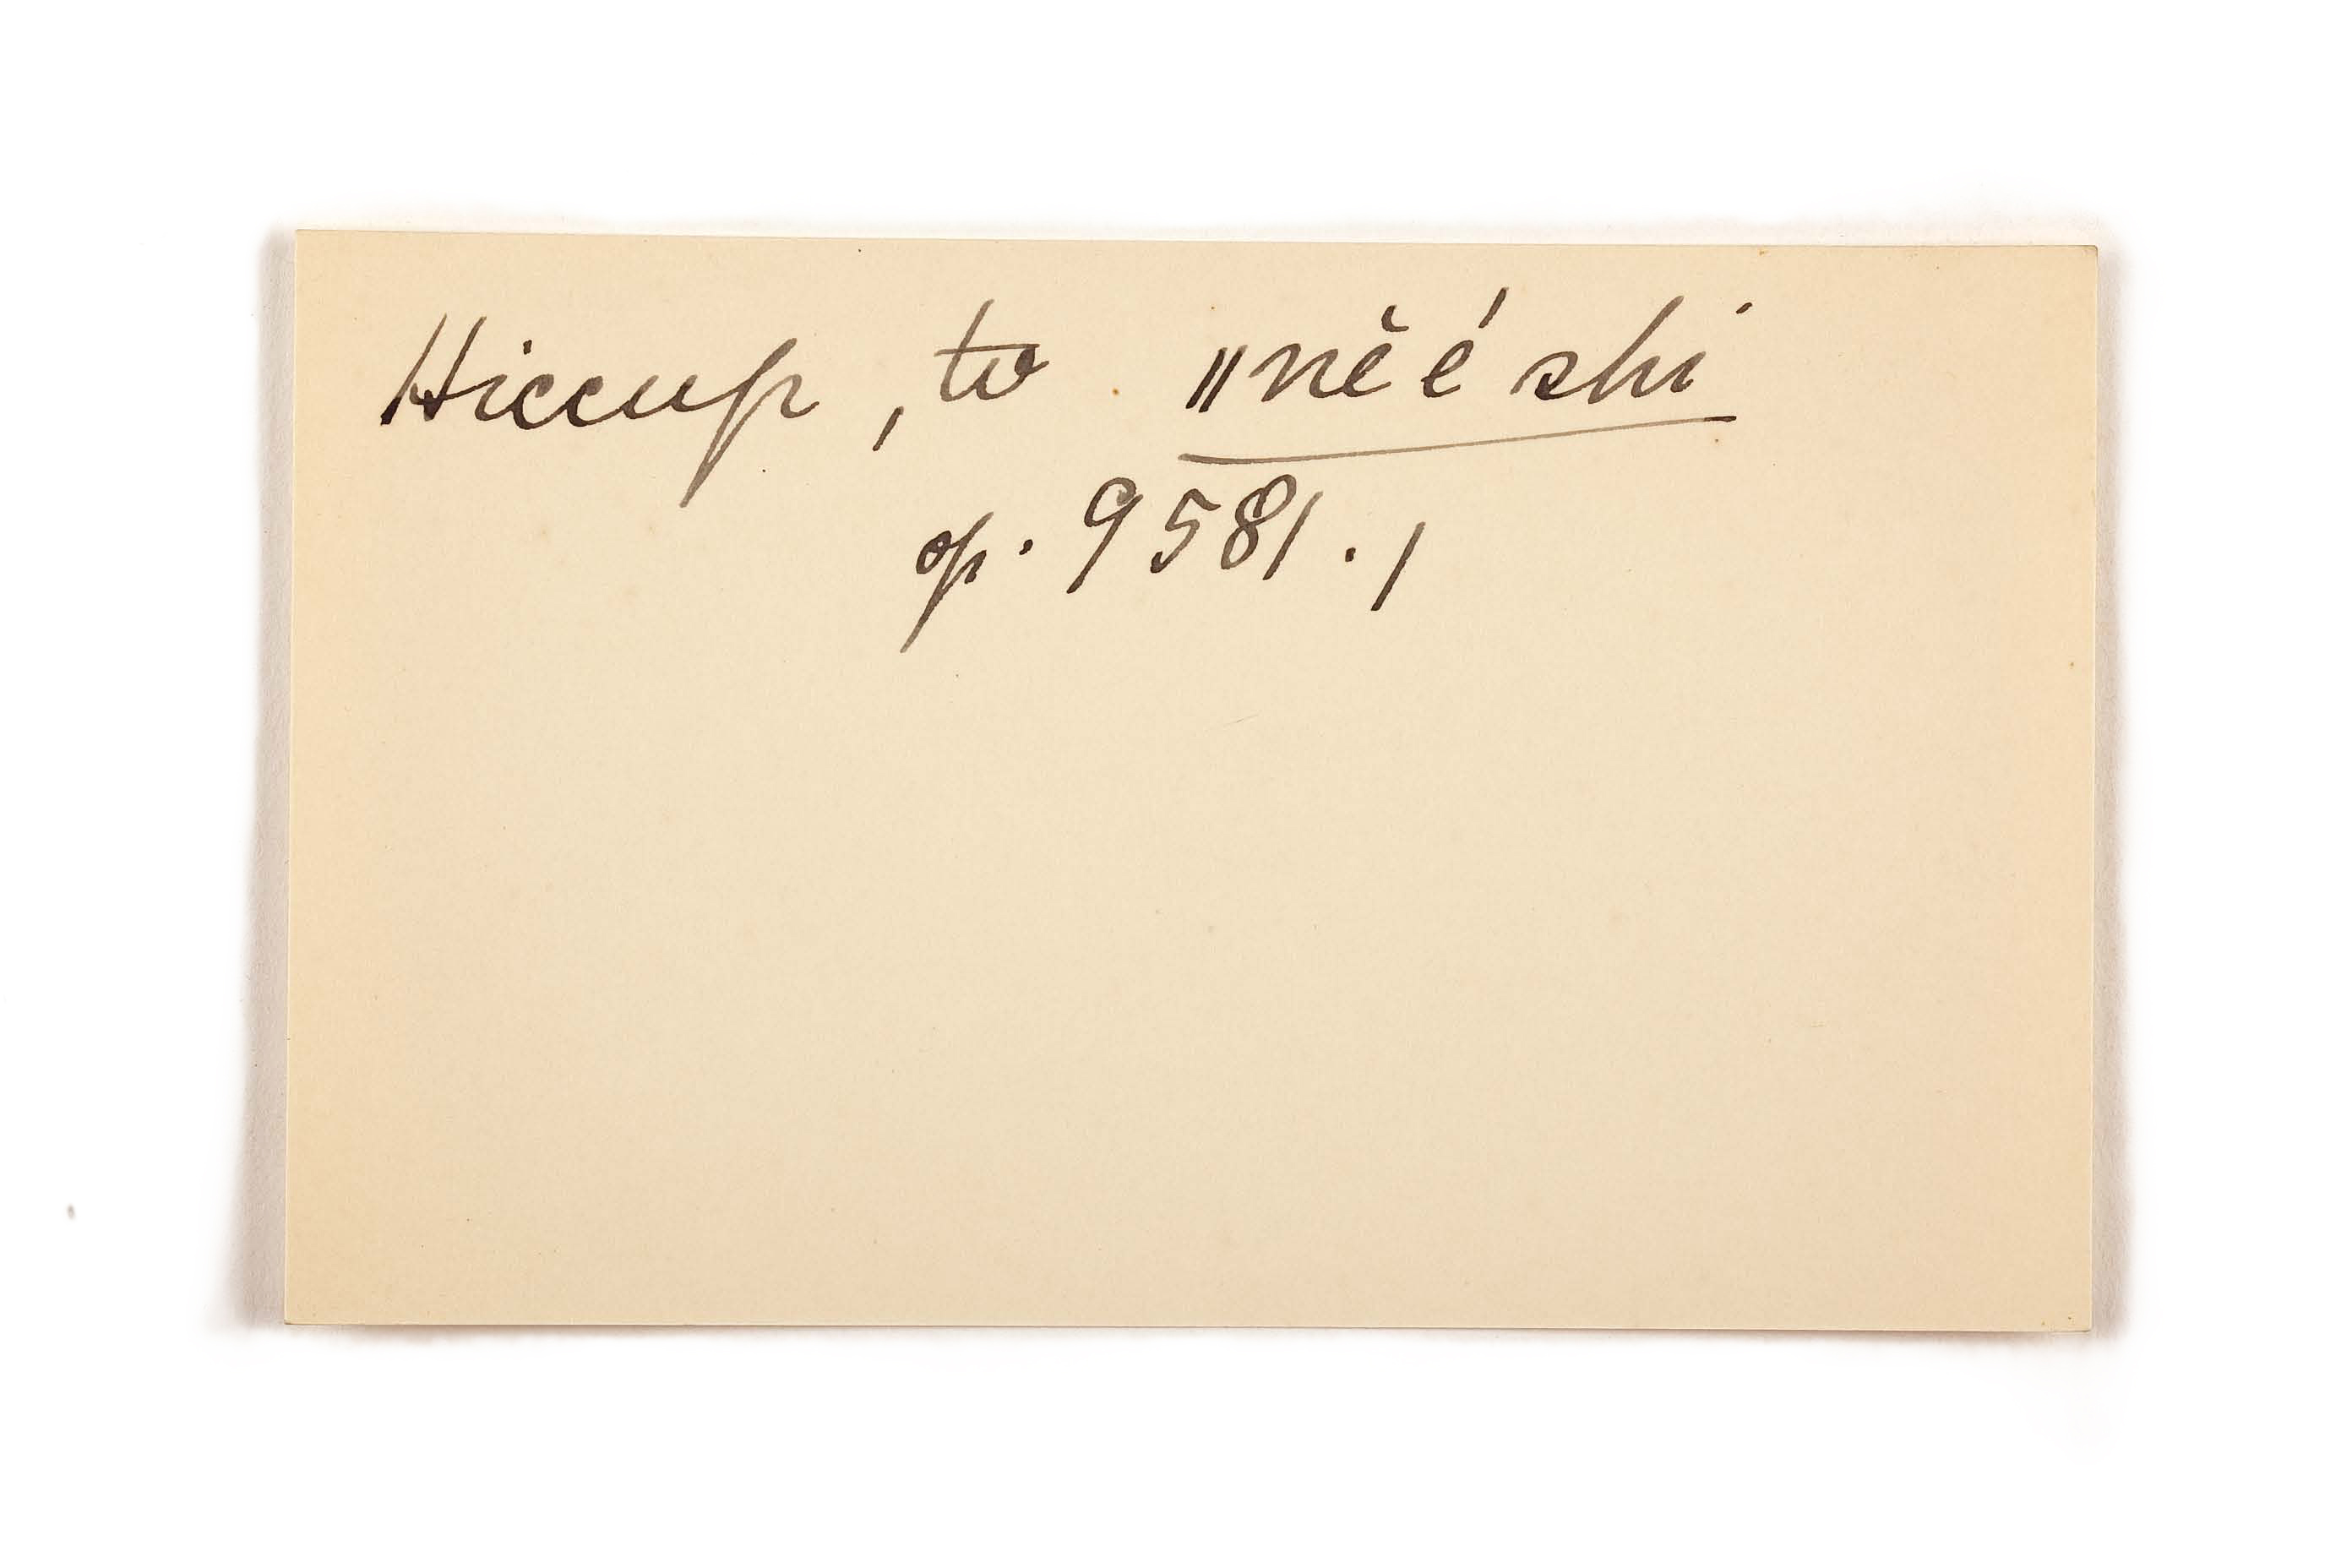 Hiccup, to "nĕé shi
p. 9581.1